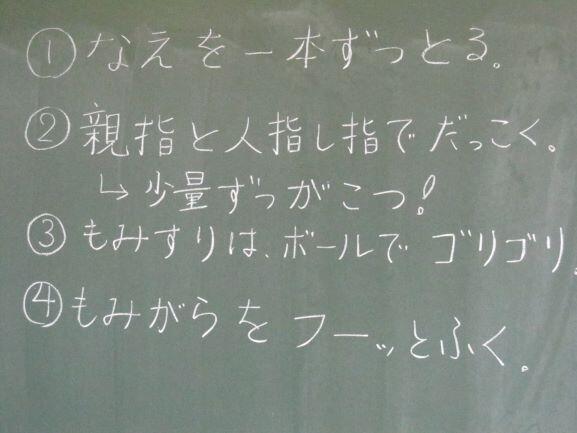 ① なえを一本ずっとる。
② 親指と人指し指でだっこく。
↳ 少量ずつがこつ!
③ もみすりは、ボールでゴリゴリ。
④ もみがらをフーッとふく。